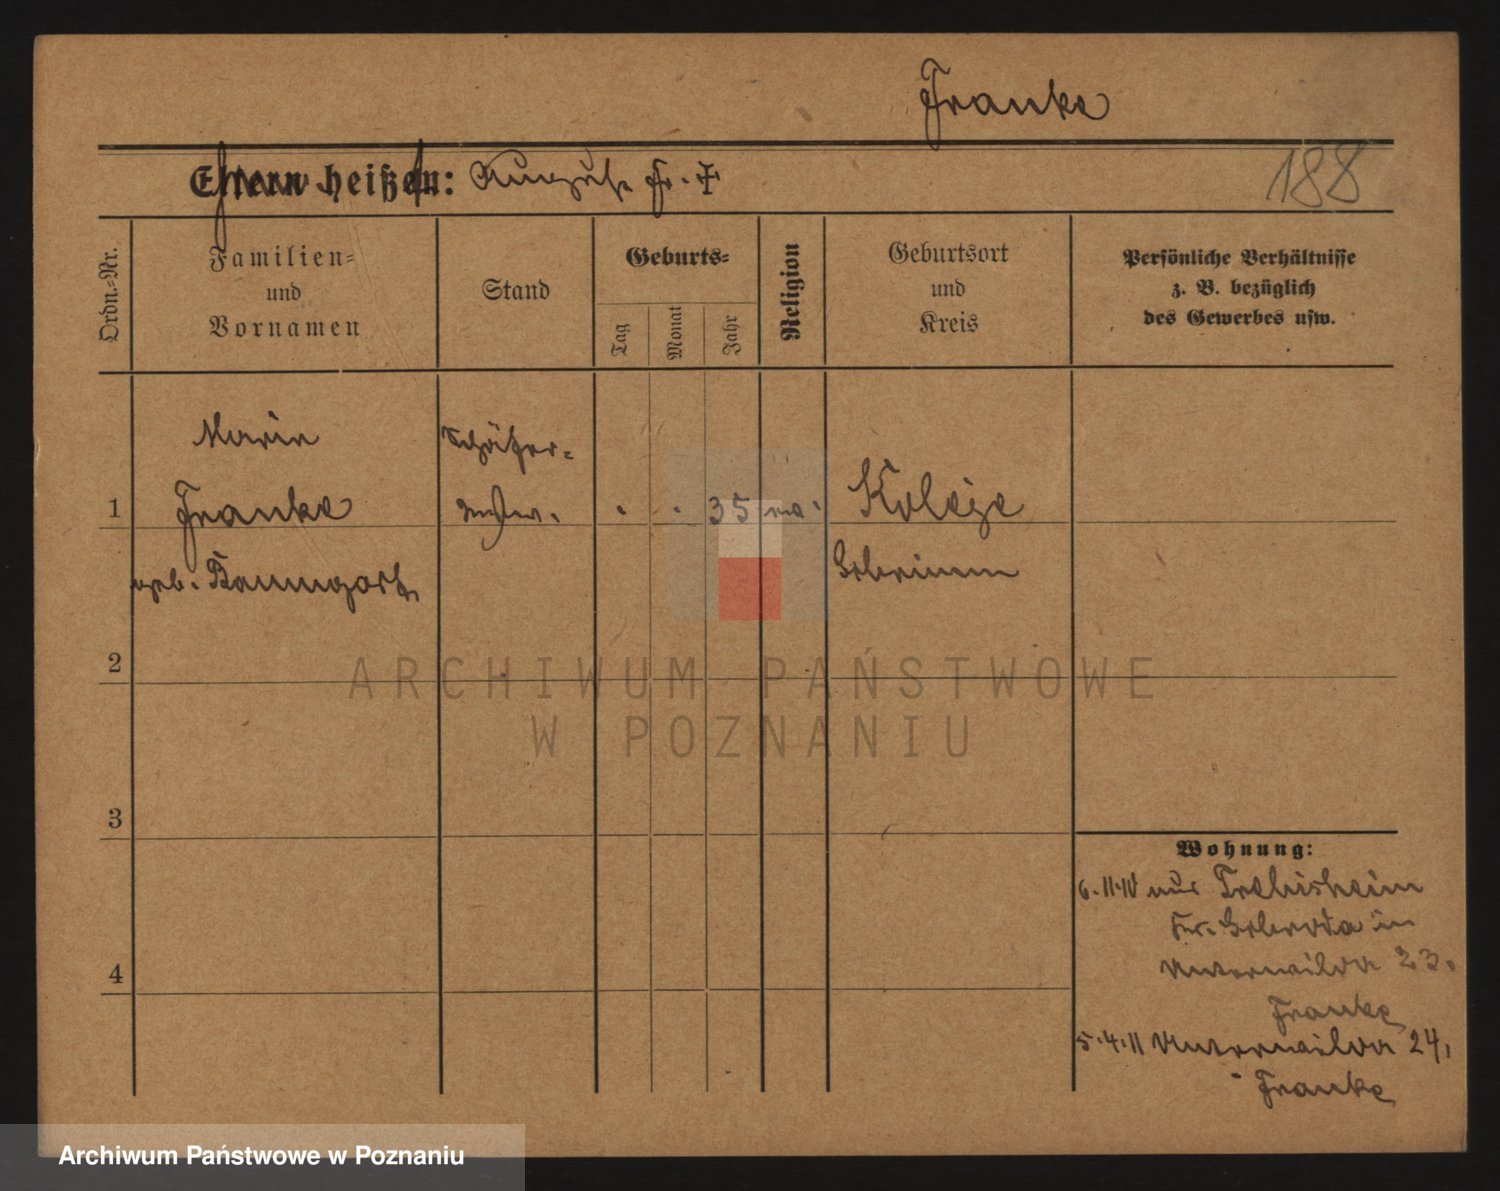 Franke
Eltern heißen: August Fr. †
188
Ordn.-Nr.
Familien-
und
Vornamen
Stand
Geburts-
Tag
Monat
Jahr
Religion
Geburtsort
und
Kreis
Persönliche Verhältnisse
z. B. bezüglich
des Gewerbes usw.
Marie Schäfer-
1 Franke 35 Koleje
geb. Baumgart
2
3
4
ARCHIWUM PAŃSTWOWE
W POZNANIU
Wohnung:
6.11.10 aus
in
Unterwilda 23.
Franke
5.4.11 Unterwilda 24,
Franke
Archiwum Państwowe w Poznaniu